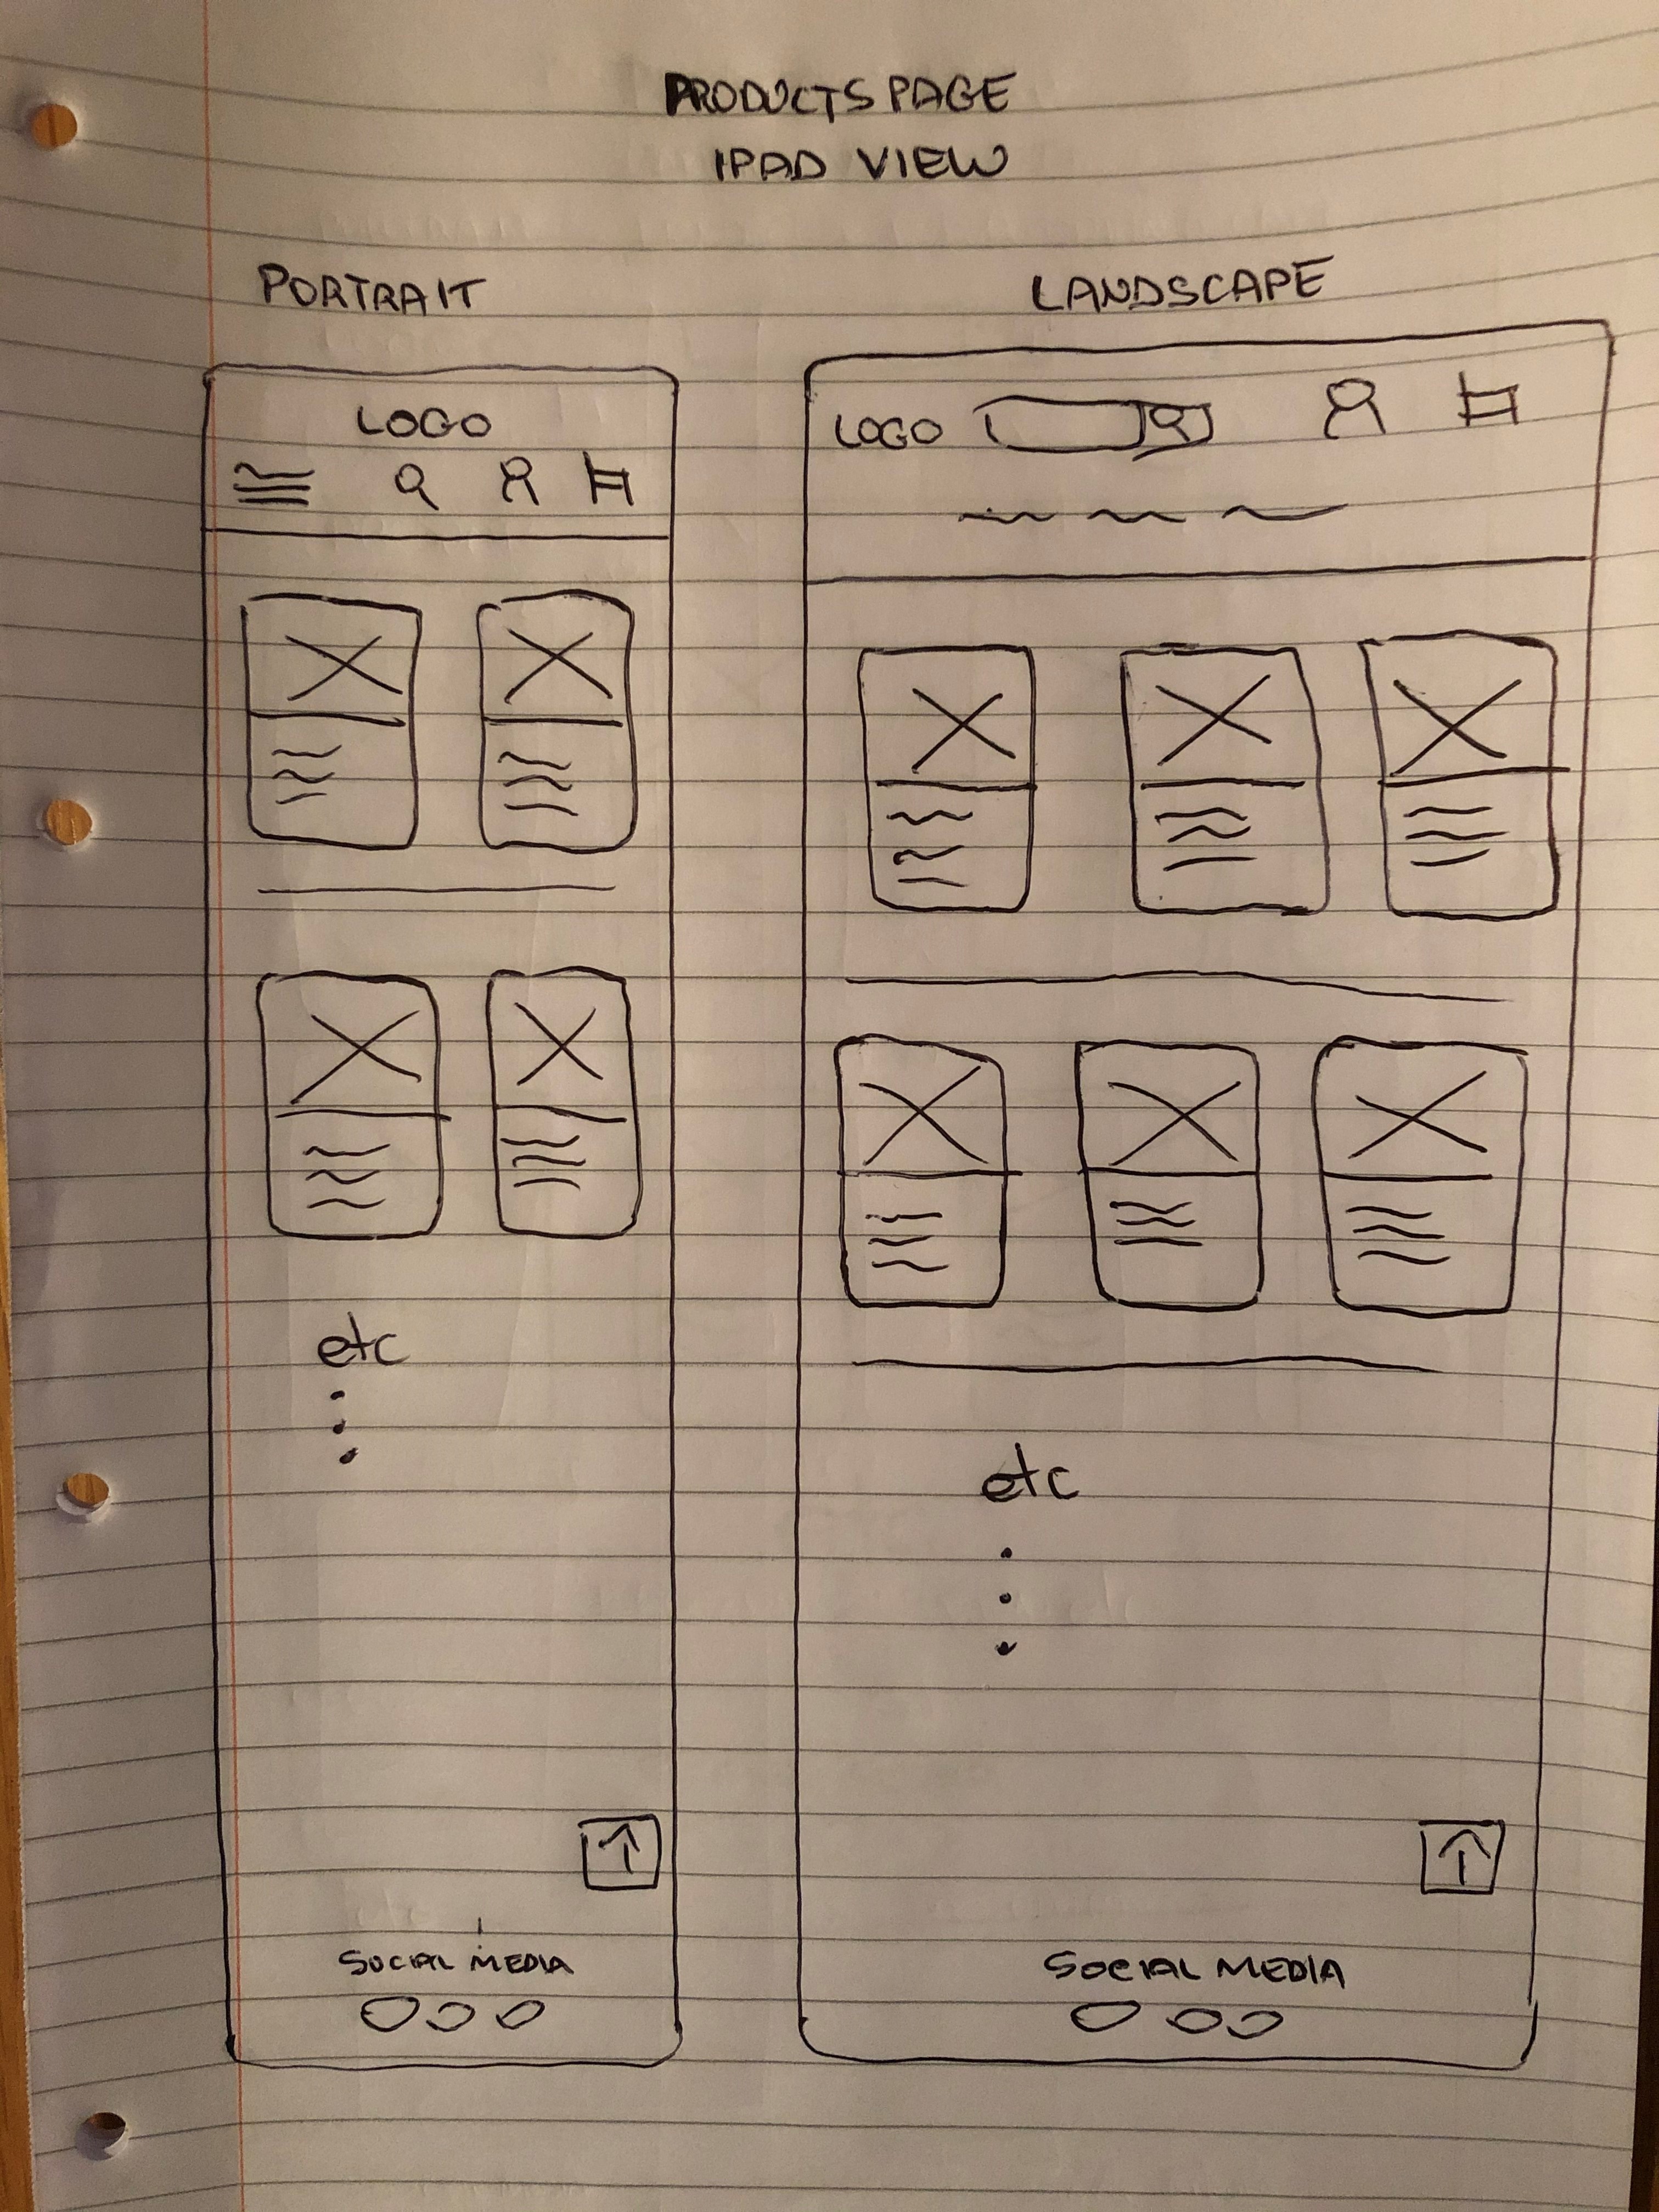 PRODUCTS PAGE
IPAD VIEW
PORTRAIT
LOGO
etc
SOCIAL MEDIA
LANDSCAPE
LOGO
etc
SOCIAL MEDIA